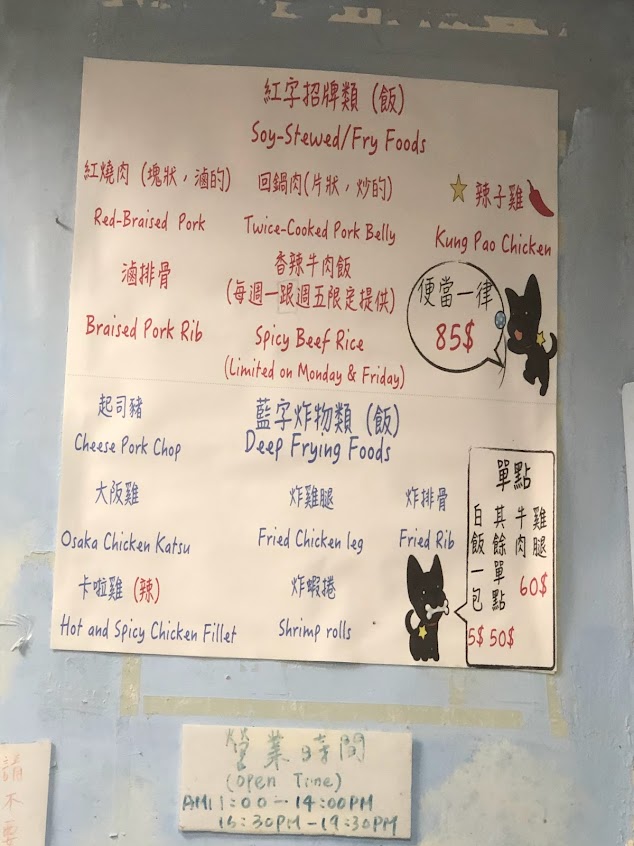 紅字招牌類 (飯)
Soy-Stewed/Fry Foods
紅燒肉 (塊狀，滷的)
Red-Braised Pork
回鍋肉(片狀，炒的)
Twice-Cooked Pork Belly
辣子雞
Kung Pao Chicken
滷排骨
Braised Pork Rib
香辣牛肉飯
(每週一跟週五限定提供)
Spicy Beef Rice
(Limited on Monday & Friday)
便當一律
85$
藍字炸物類 (飯)
Deep Frying Foods
起司豬
Cheese Pork Chop
大阪雞
Osaka Chicken Katsu
炸雞腿
Fried Chicken leg
炸排骨
Fried Rib
卡啦雞 (辣)
Hot and Spicy Chicken Fillet
炸蝦捲
Shrimp rolls
單點
雞腿
牛肉
60$
其餘單點
50$
白飯一包
5$
營業時間
(Open Time)
AM11:00-14:00PM
16:30PM-19:30PM
請不要